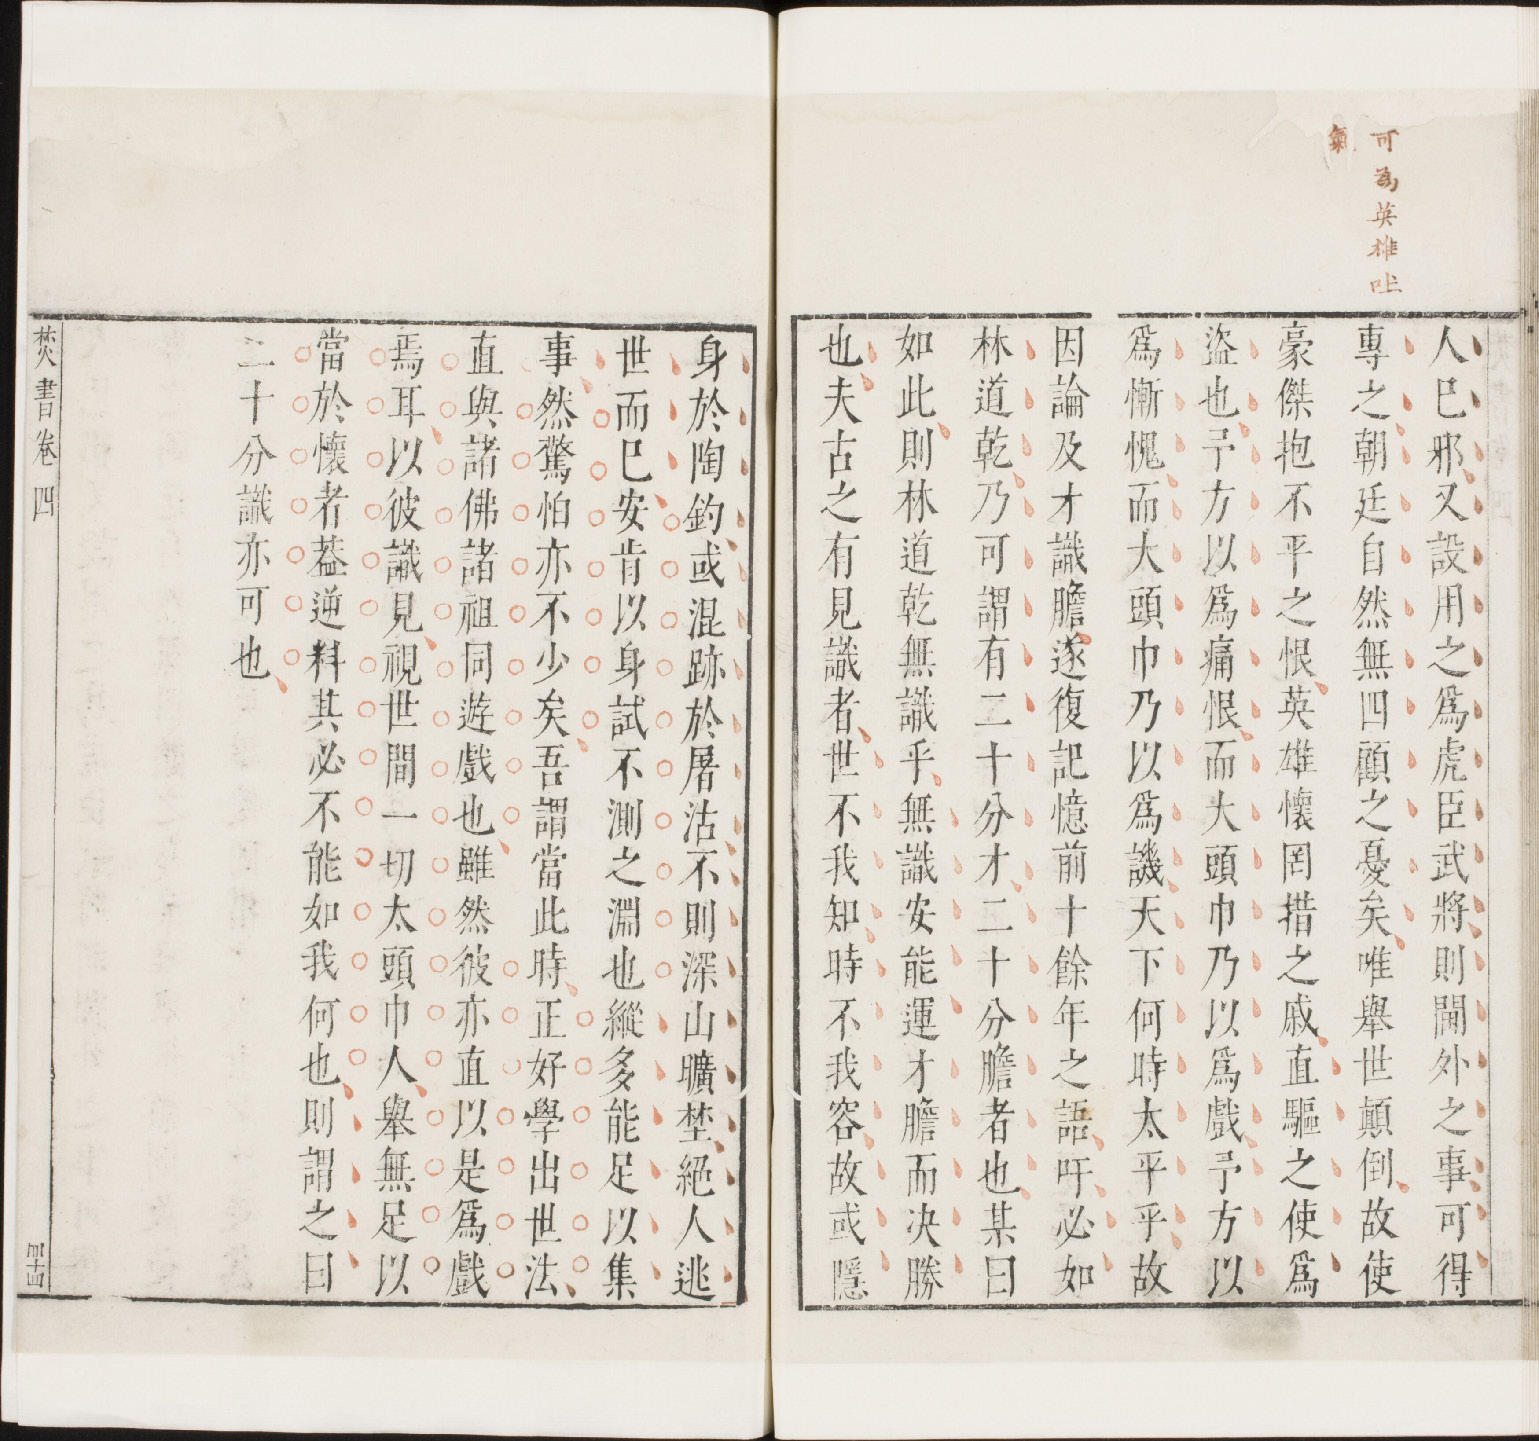 可爲英雄吐
氣
人已邪又設用之爲虎臣武將則閫外之事可得
專之朝廷自然無四顧之憂矣唯舉世顛倒故使
豪傑抱不平之恨英雄懷罔措之戚直驅之使爲
盜也予方以爲痛恨而大頭巾乃以爲戲予方以
爲慚愧而大頭巾乃以爲譏天下何時太平乎故
因論及才識膽遂復記憶前十餘年之語吁必如
林道乾乃可謂有二十分才二十分膽者也某曰
如此則林道乾無識乎無識安能運才膽而决勝
也夫古之有見識者世不我知時不我容故或隱
身於陶釣或混跡於屠沽不則深山曠埜絕人逃
世而已安肯以身試不測之淵也縱多能足以集
事然驚怕亦不少矣吾謂當此時正好學出世法
直與諸佛諸祖同遊戲也雖然彼亦直以是爲戲
焉耳以彼識見視世間一切太頭巾人舉無足以
當於懷者葢逆料其必不能如我何也則謂之曰
二十分識亦可也
焚書卷四
四十四